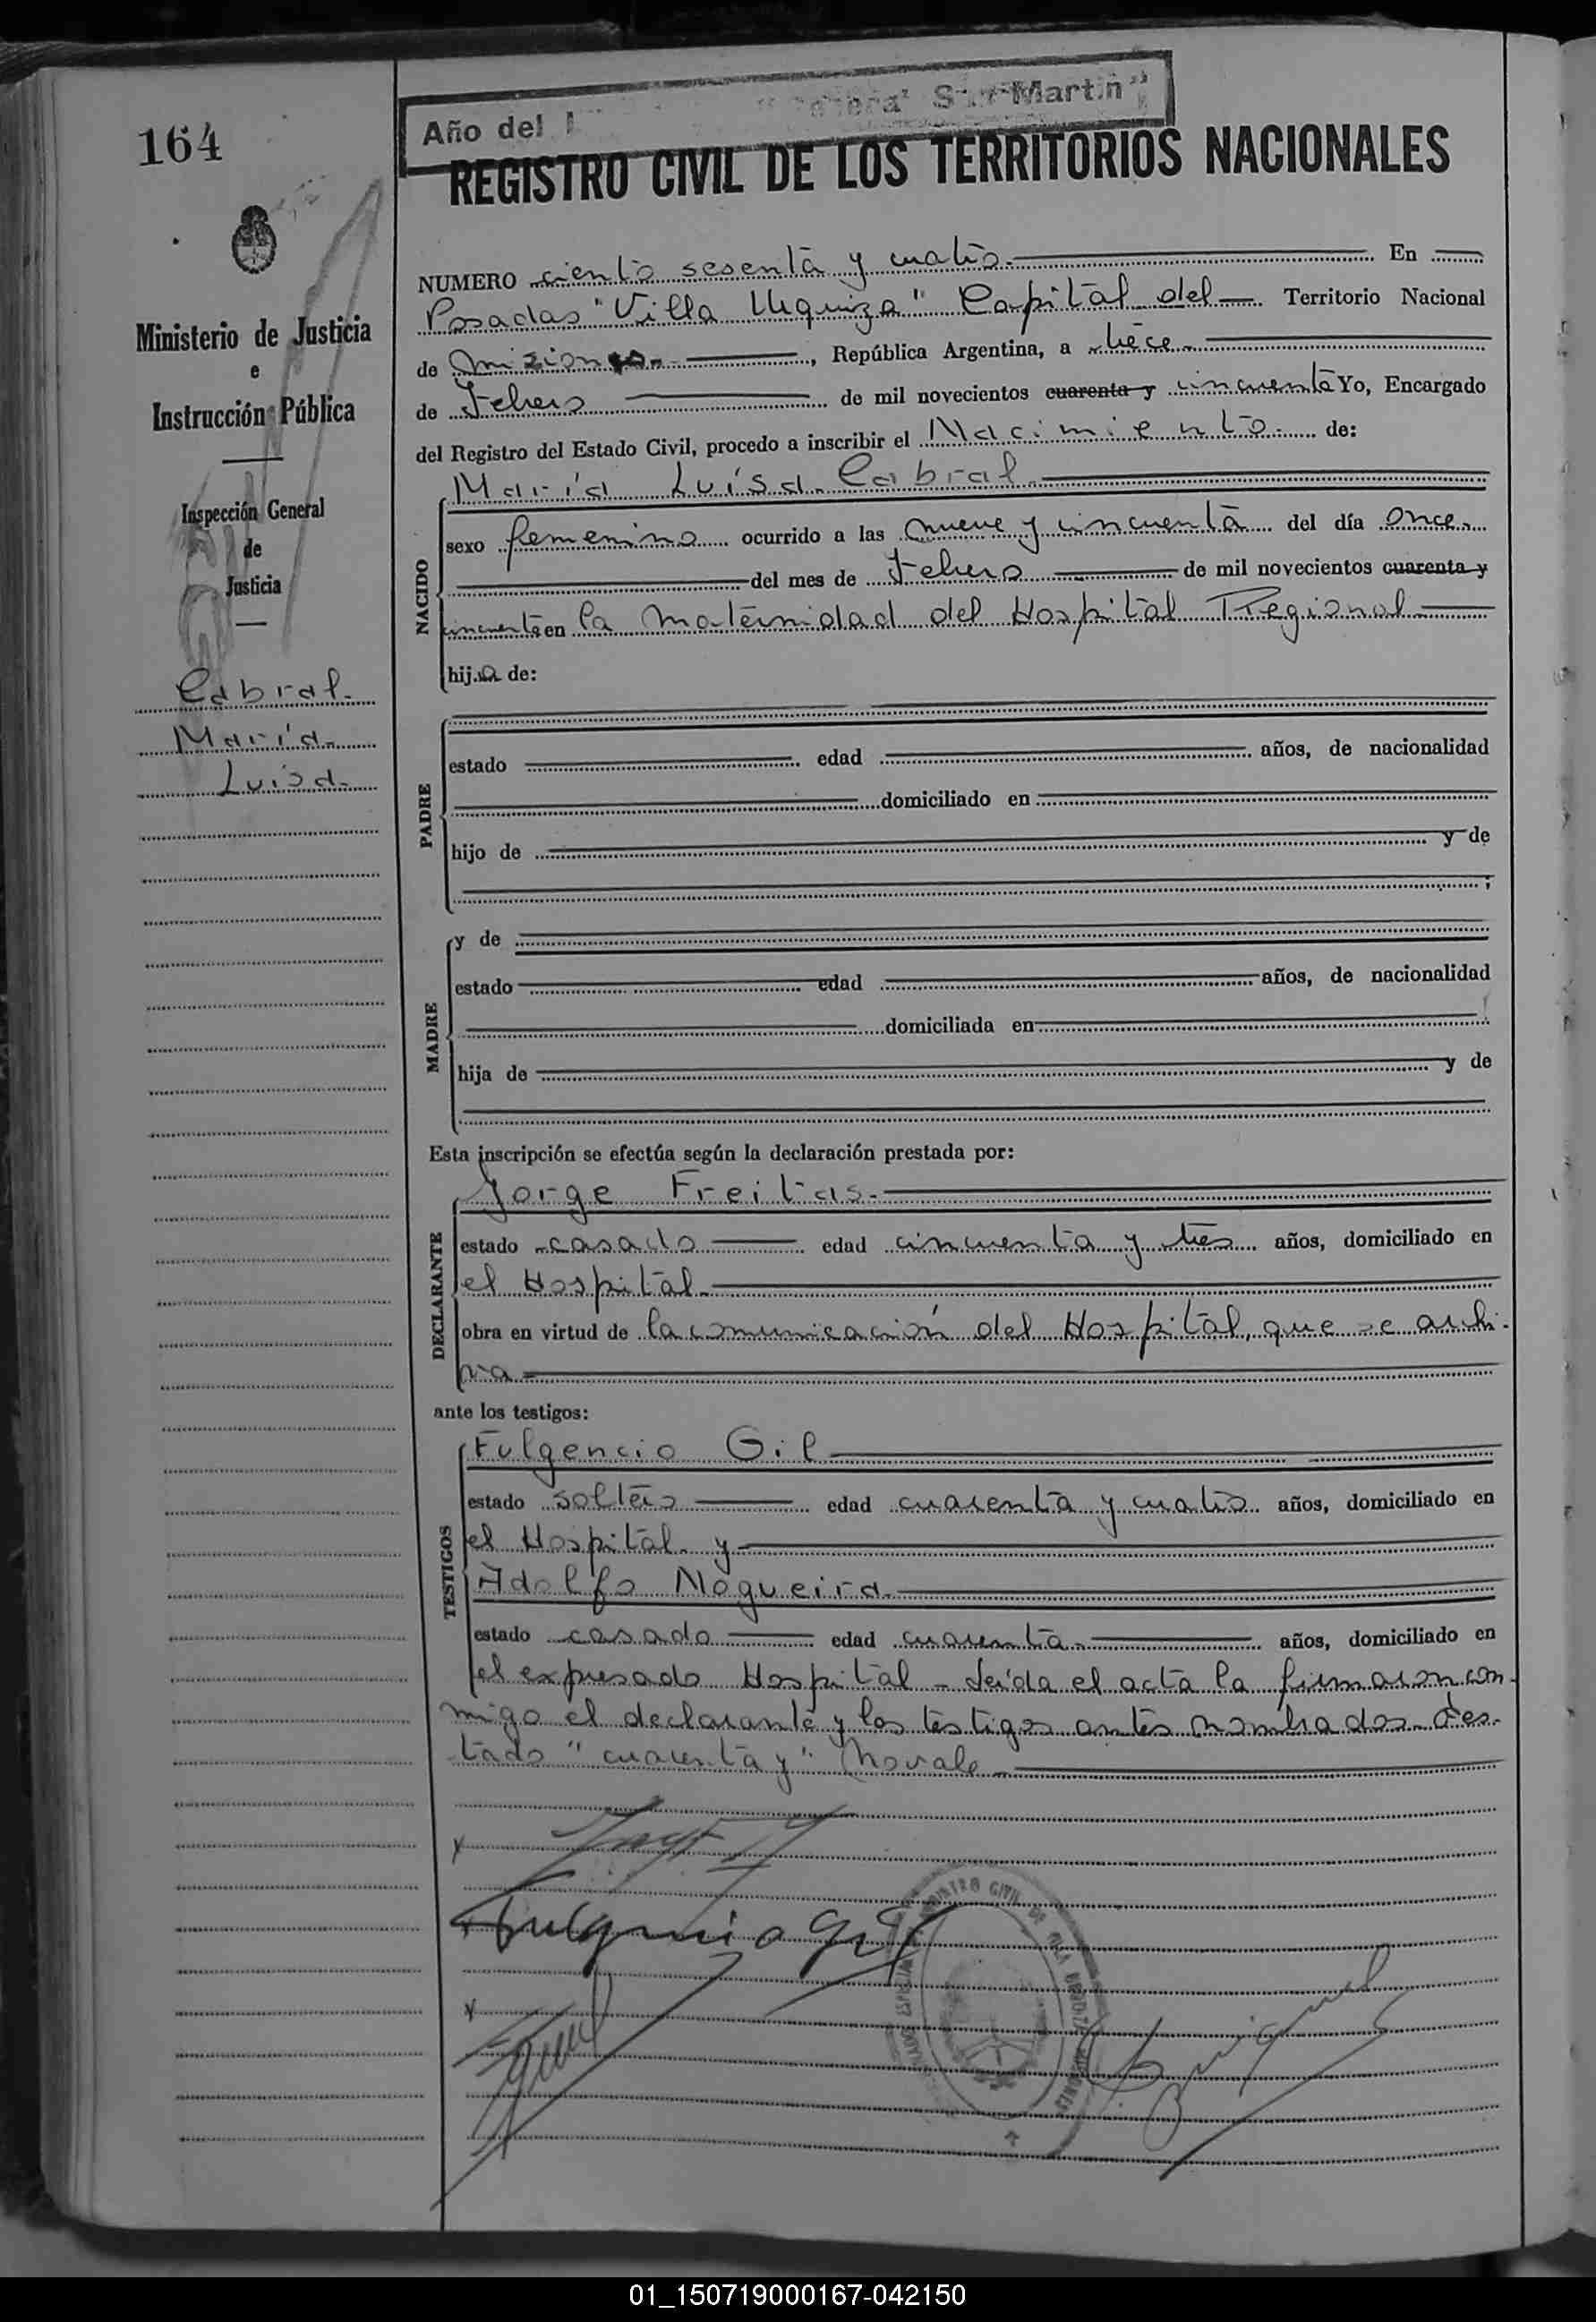 164
Año del "General San Martin"
REGISTRO CIVIL DE LOS TERRITORIOS NACIONALES
Ministerio de Justicia
e
Instrucción Pública
Inspección General
de
Justicia
Cabral.
María
Luisa.
NUMERO ciento sesenta y cuatro. En
Posadas "Villa Urquiza" Capital del Territorio Nacional
de Misiones, República Argentina, a trece
de Febrero de mil novecientos cuarenta y cincuenta Yo, Encargado
del Registro del Estado Civil, procedo a inscribir el Nacimiento de:
NACIDO
María Luisa Cabral
sexo femenino ocurrido a las nueve y cincuenta del día once
del mes de Febrero de mil novecientos cuarenta y
cincuenta en la Maternidad del Hospital Regional
hija de:
PADRE
estado edad años, de nacionalidad
domiciliado en
hijo de y de
;
MADRE
y de
estado edad años, de nacionalidad
domiciliada en
hija de y de
Esta inscripción se efectúa según la declaración prestada por:
DECLARANTE
Jorge Freitas.
estado casado edad cincuenta y tres años, domiciliado en
el Hospital
obra en virtud de la comunicación del Hospital, que se archi-
va
ante los testigos:
TESTIGOS
Fulgencio Gil
estado soltero edad cuarenta y cuatro años, domiciliado en
el Hospital y
Adolfo Nogueira.
estado casado edad cuarenta años, domiciliado en
el expresado Hospital - Leída el acta la firmaron con-
migo el declarante y los testigos antes nombrados Tes-
tado "cuarenta y" No vale
Fulgencio Gil
REGISTRO CIVIL DE
01_150719000167-042150